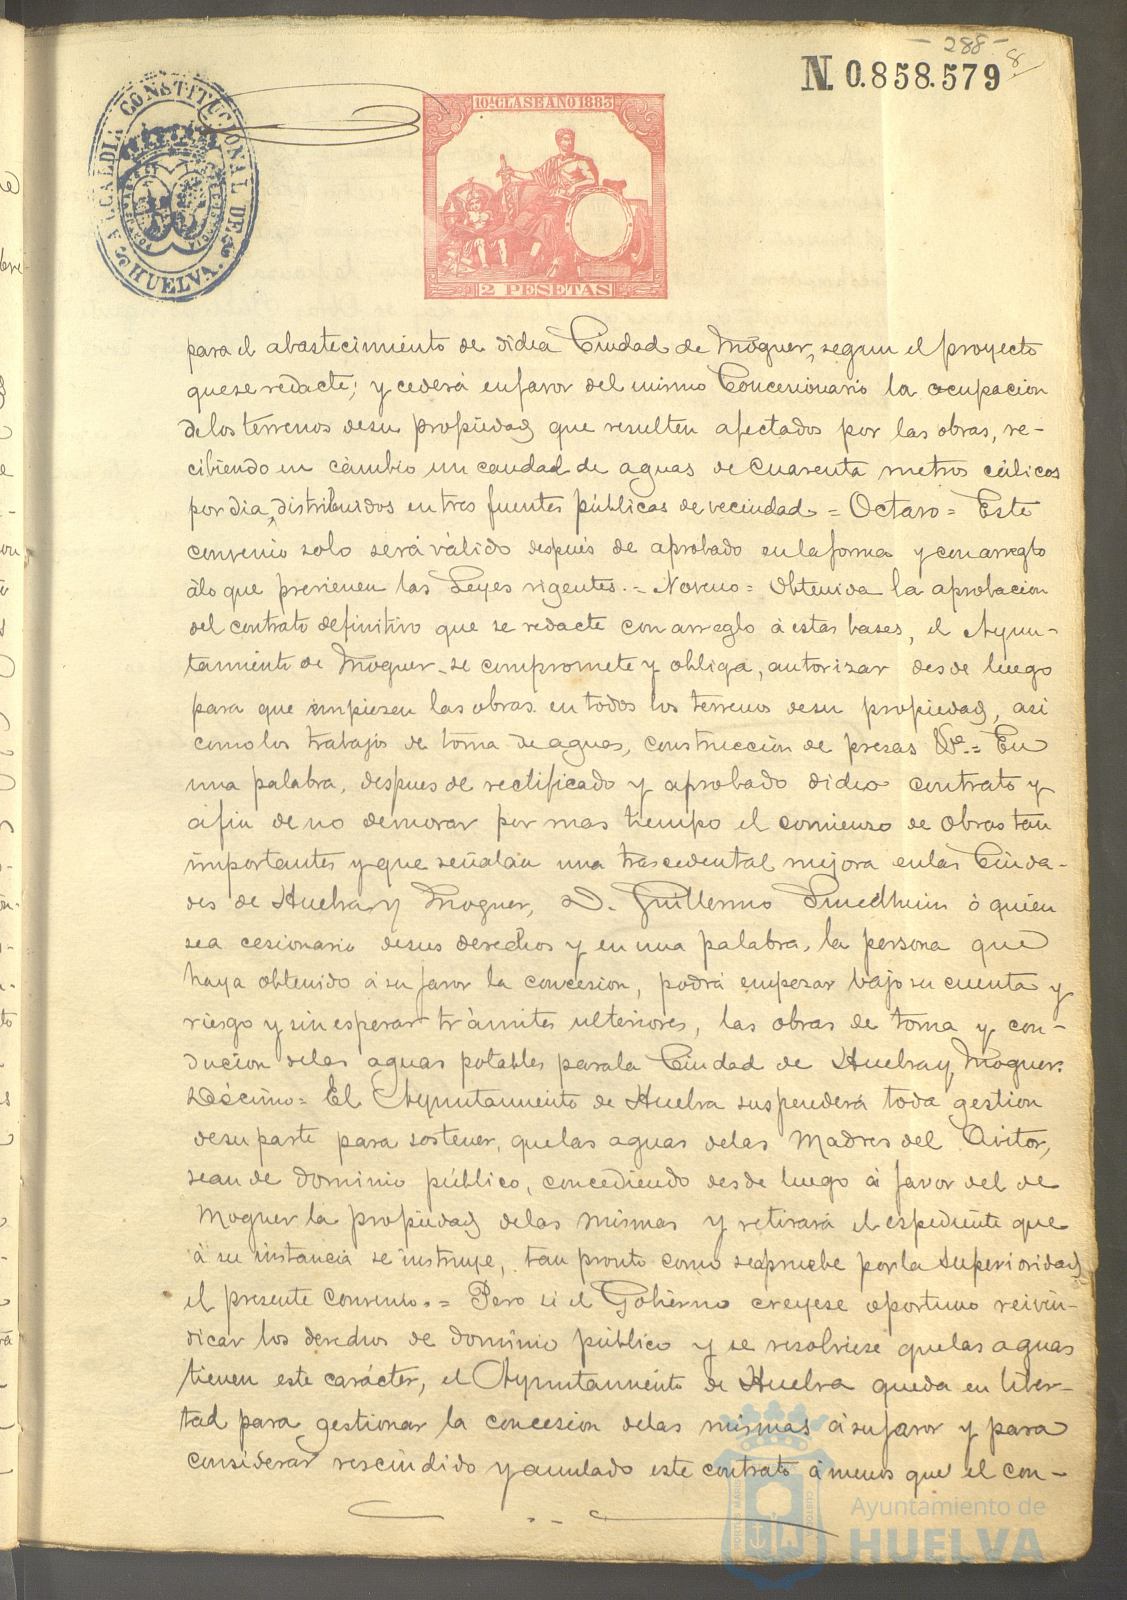 - 288 -
8
N. 0.858.579
ALCALDIA CONSTITUCIONAL DE HUELVA.
10ª CLASE AÑO 1883
2 PESETAS
para el abastecimiento de dicha Ciudad de Moguer, segun el proyecto
que se redacte; y cederá en favor del mismo Concesionario la ocupacion
de los terrenos de su propiedad que resulten afectados por las obras, re-
cibiendo en cambio un caudal de aguas de cuarenta metros cúbicos
por dia, distribuidos en tres fuentes públicas de vecindad. = Octavo = Este
convenio solo será válido despues de aprobado en la forma y con arreglo
á lo que previenen las Leyes vigentes. = Noveno = Obtenida la aprobacion
del contrato definitivo que se redacte con arreglo á estas bases, el Ayun-
tamiento de Moguer se compromete y obliga, autorizar desde luego
para que empiezen las obras en todos los terrenos de su propiedad, asi
como los trabajos de toma de aguas, construccion de presas &ª. = En
una palabra, despues de rectificado y aprobado dicho contrato y
á fin de no demorar por mas tiempo el comienzo de obras tan
importantes y que señalan una trascedental mejora en las Ciuda-
des de Huelva y Moguer, D. Guillermo Sundheim ó quien
sea cesionario de sus derechos y en una palabra, la persona que
haya obtenido á su favor la concesion, podrá empezar bajo su cuenta y
riesgo y sin esperar trámites ulteriores, las obras de toma y con-
ducion de las aguas potables para la Ciudad de Huelva y Moguer=
Décimo = El Ayuntamiento de Huelva suspenderá toda gestion
de su parte para sostener, que las aguas de las Madres del Avitor,
sean de dominio público, concediendo desde luego á favor del de
Moguer la propiedad de las mismas y retirará el espediente que
á su instancia se instruye, tan pronto como se apruebe por la Superioridad
el presente Convenio. = Pero si el Gobierno creyese oportuno reivin-
dicar los derechos de dominio público y se resolviese que las aguas
tienen este carácter, el Ayuntamiento de Huelva queda en liber-
tad para gestionar la concesion de las mismas á su favor y para
considerar rescindido y anulado este contrato á menos que el con-
Ayuntamiento de
HUELVA